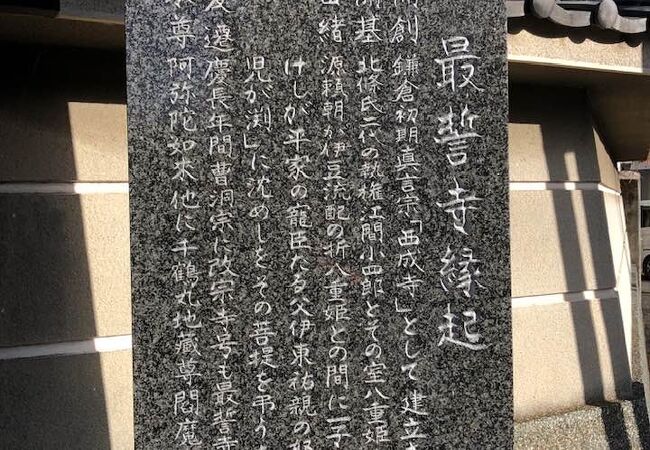 最誓寺縁起
開創 鎌倉初期真言宗「西成寺」として建立
開基 北條氏二代の執権江間小四郎とその室八重姫
由緒 源頼朝が伊豆流配の折八重姫との間に一子
けしが平家の寵臣たる父伊東祐親の怒
児が渕」に沈めしとその菩提を弔う
変遷 慶長年間曹洞宗に改宗寺号も最誓寺
本尊 阿弥陀如来他に千鶴丸地蔵尊閻魔